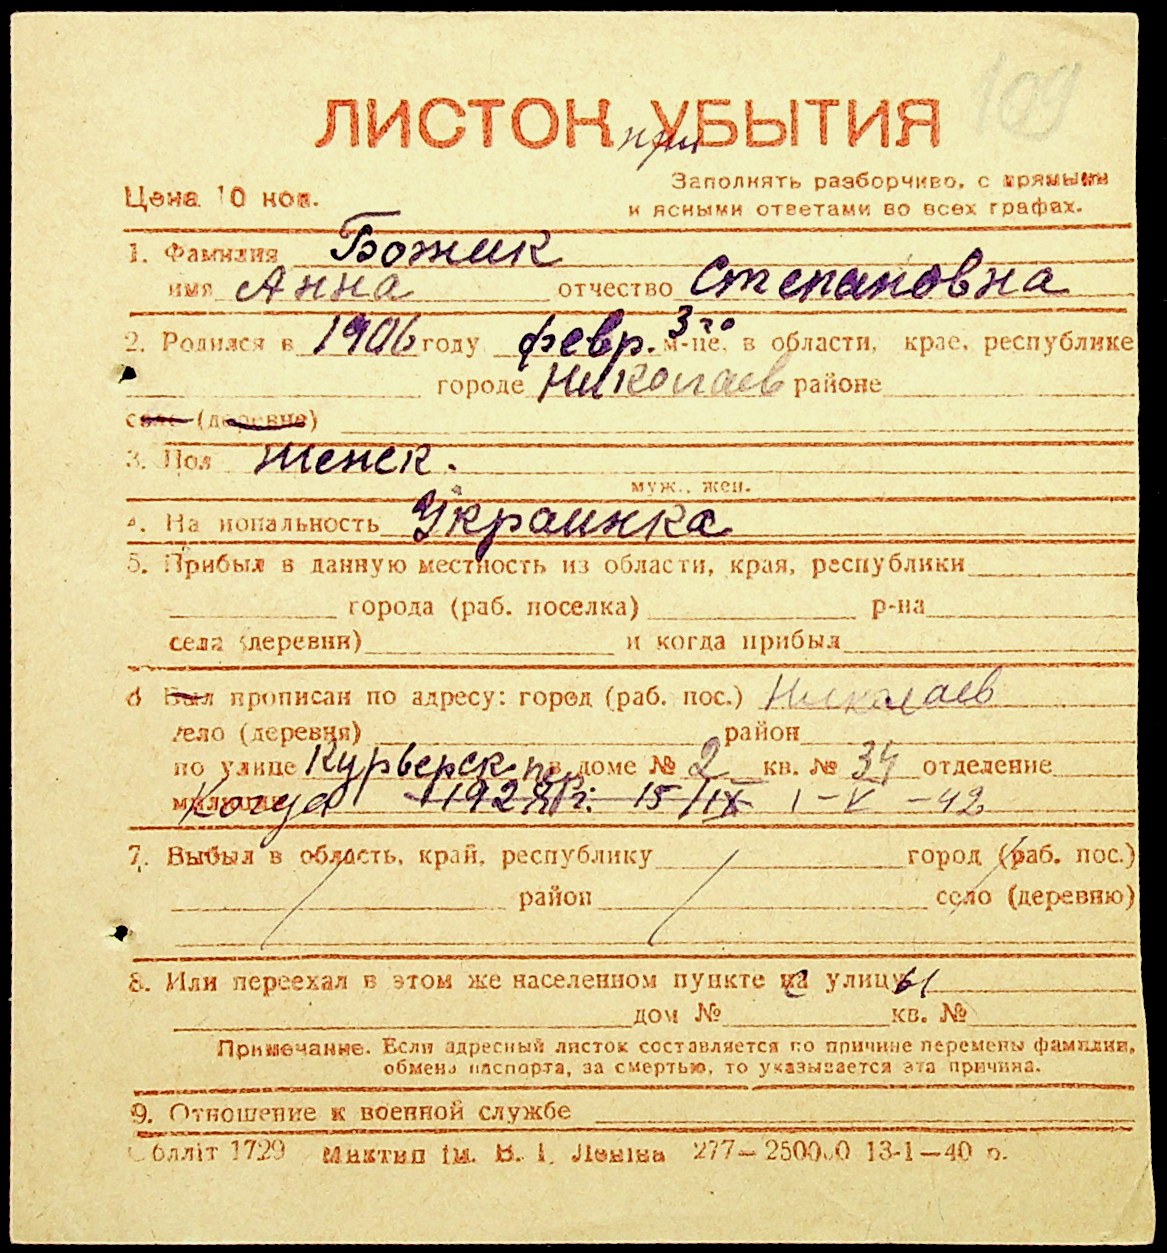 109
ЛИСТОК УБЫТИЯ
при
Цена 10 коп.
Заполнять разборчиво, с прямыми
и ясными ответами во всех графах.
1. Фамилия Божик
имя Анна отчество Степановна
2. Родился в 1906 году февр. 3го м-це, в области, крае, республике
городе Николаев районе
село (деревне)
3. Пол женск.
муж., жен.
4. Национальность Украинка
5. Прибыл в данную местность из области, края, республики
города (раб. поселка) р-на
села (деревни) и когда прибыл
6 Был прописан по адресу: город (раб. пос.) Николаев
село (деревня) район
по улице Курьерск. пер. в доме № 2 кв. № 34 отделение
милиции Когда 15/IX 1-V-42
7. Выбыл в область, край, республику город (раб. пос.)
район село (деревню)
8. Или переехал в этом же населенном пункте на с улицу ы
дом № кв. №
Примечание. Если адресный листок составляется по причине перемены фамилии,
обмена паспорта, за смертью, то указывается эта причина.
9. Отношение к военной службе
Облліт 1729 Миктип ім. В. І. Леніна 277—250000 13-1—40 р.